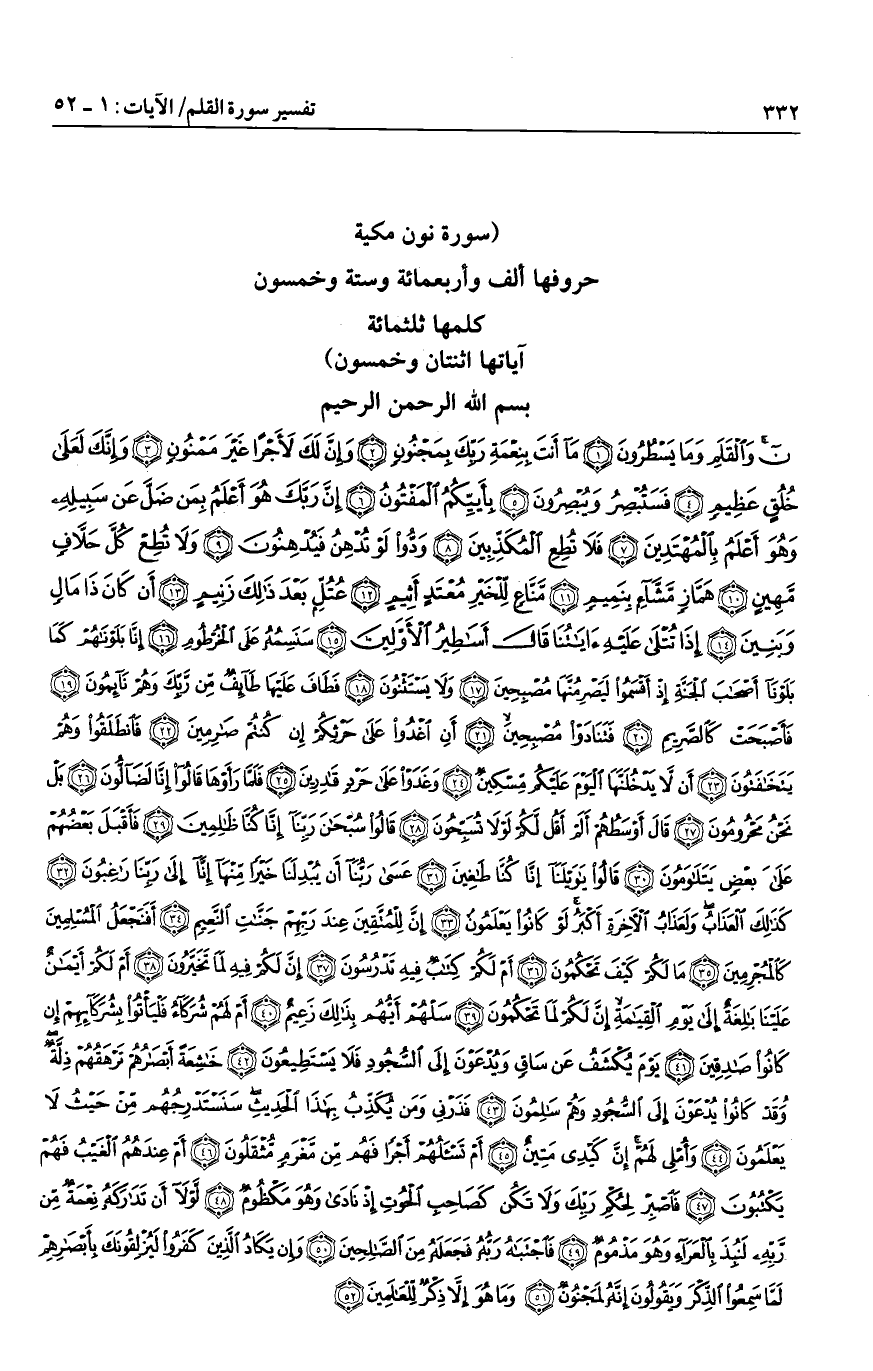 ٣٣٢ تفسير سورة القلم/ الآيات: ١ ـ ٥٢
(سورة نون مكية
حروفها ألف وأربعمائة وستة وخمسون
كلمها ثلثمائة
آياتها اثنتان وخمسون)
بسم الله الرحمن الرحيم
نٓۚ وَٱلْقَلَمِ وَمَا يَسْطُرُونَ ﴿١﴾ مَآ أَنتَ بِنِعْمَةِ رَبِّكَ بِمَجْنُونٍ ﴿٢﴾ وَإِنَّ لَكَ لَأَجْرًا غَيْرَ مَمْنُونٍ ﴿٣﴾ وَإِنَّكَ لَعَلَىٰ
خُلُقٍ عَظِيمٍ ﴿٤﴾ فَسَتُبْصِرُ وَيُبْصِرُونَ ﴿٥﴾ بِأَييِّكُمُ ٱلْمَفْتُونُ ﴿٦﴾ إِنَّ رَبَّكَ هُوَ أَعْلَمُ بِمَن ضَلَّ عَن سَبِيلِهِۦ
وَهُوَ أَعْلَمُ بِٱلْمُهْتَدِينَ ﴿٧﴾ فَلَا تُطِعِ ٱلْمُكَذِّبِينَ ﴿٨﴾ وَدُّوا۟ لَوْ تُدْهِنُ فَيُدْهِنُونَ ﴿٩﴾ وَلَا تُطِعْ كُلَّ حَلَّافٍ
مَّهِينٍ ﴿١٠﴾ هَمَّازٍ مَّشَّآءٍ بِنَمِيمٍ ﴿١١﴾ مَّنَّاعٍ لِّلْخَيْرِ مُعْتَدٍ أَثِيمٍ ﴿١٢﴾ عُتُلٍّ بَعْدَ ذَٰلِكَ زَنِيمٍ ﴿١٣﴾ أَن كَانَ ذَا مَالٍ
وَبَنِينَ ﴿١٤﴾ إِذَا تُتْلَىٰ عَلَيْهِ ءَايَـٰتُنَا قَالَ أَسَـٰطِيرُ ٱلْأَوَّلِينَ ﴿١٥﴾ سَنَسِمُهُۥ عَلَى ٱلْخُرْطُومِ ﴿١٦﴾ إِنَّا بَلَوْنَـٰهُمْ كَمَا
بَلَوْنَآ أَصْحَـٰبَ ٱلْجَنَّةِ إِذْ أَقْسَمُوا۟ لَيَصْرِمُنَّهَا مُصْبِحِينَ ﴿١٧﴾ وَلَا يَسْتَثْنُونَ ﴿١٨﴾ فَطَافَ عَلَيْهَا طَآئِفٌ مِّن رَّبِّكَ وَهُمْ نَآئِمُونَ ﴿١٩﴾
فَأَصْبَحَتْ كَٱلصَّرِيمِ ﴿٢٠﴾ فَتَنَادَوْا۟ مُصْبِحِينَ ﴿٢١﴾ أَنِ ٱغْدُوا۟ عَلَىٰ حَرْثِكُمْ إِن كُنتُمْ صَـٰرِمِينَ ﴿٢٢﴾ فَٱنطَلَقُوا۟ وَهُمْ
يَتَخَـٰفَتُونَ ﴿٢٣﴾ أَن لَّا يَدْخُلَنَّهَا ٱلْيَوْمَ عَلَيْكُم مِّسْكِينٌ ﴿٢٤﴾ وَغَدَوْا۟ عَلَىٰ حَرْدٍ قَـٰدِرِينَ ﴿٢٥﴾ فَلَمَّا رَأَوْهَا قَالُوٓا۟ إِنَّا لَضَآلُّونَ ﴿٢٦﴾ بَلْ
نَحْنُ مَحْرُومُونَ ﴿٢٧﴾ قَالَ أَوْسَطُهُمْ أَلَمْ أَقُل لَّكُمْ لَوْلَا تُسَبِّحُونَ ﴿٢٨﴾ قَالُوا۟ سُبْحَـٰنَ رَبِّنَآ إِنَّا كُنَّا ظَـٰلِمِينَ ﴿٢٩﴾ فَأَقْبَلَ بَعْضُهُمْ
عَلَىٰ بَعْضٍ يَتَلَـٰوَمُونَ ﴿٣٠﴾ قَالُوا۟ يَـٰوَيْلَنَآ إِنَّا كُنَّا طَـٰغِينَ ﴿٣١﴾ عَسَىٰ رَبُّنَآ أَن يُبْدِلَنَا خَيْرًا مِّنْهَآ إِنَّآ إِلَىٰ رَبِّنَا رَٰغِبُونَ ﴿٣٢﴾
كَذَٰلِكَ ٱلْعَذَابُ ۖ وَلَعَذَابُ ٱلْـَٔاخِرَةِ أَكْبَرُ ۚ لَوْ كَانُوا۟ يَعْلَمُونَ ﴿٣٣﴾ إِنَّ لِلْمُتَّقِينَ عِندَ رَبِّهِمْ جَنَّـٰتِ ٱلنَّعِيمِ ﴿٣٤﴾ أَفَنَجْعَلُ ٱلْمُسْلِمِينَ
كَٱلْمُجْرِمِينَ ﴿٣٥﴾ مَا لَكُمْ كَيْفَ تَحْكُمُونَ ﴿٣٦﴾ أَمْ لَكُمْ كِتَـٰبٌ فِيهِ تَدْرُسُونَ ﴿٣٧﴾ إِنَّ لَكُمْ فِيهِ لَمَا تَخَيَّرُونَ ﴿٣٨﴾ أَمْ لَكُمْ أَيْمَـٰنٌ
عَلَيْنَا بَـٰلِغَةٌ إِلَىٰ يَوْمِ ٱلْقِيَـٰمَةِ ۙ إِنَّ لَكُمْ لَمَا تَحْكُمُونَ ﴿٣٩﴾ سَلْهُمْ أَيُّهُم بِذَٰلِكَ زَعِيمٌ ﴿٤٠﴾ أَمْ لَهُمْ شُرَكَآءُ فَلْيَأْتُوا۟ بِشُرَكَآئِهِمْ إِن
كَانُوا۟ صَـٰدِقِينَ ﴿٤١﴾ يَوْمَ يُكْشَفُ عَن سَاقٍ وَيُدْعَوْنَ إِلَى ٱلسُّجُودِ فَلَا يَسْتَطِيعُونَ ﴿٤٢﴾ خَـٰشِعَةً أَبْصَـٰرُهُمْ تَرْهَقُهُمْ ذِلَّةٌ ۖ
وَقَدْ كَانُوا۟ يُدْعَوْنَ إِلَى ٱلسُّجُودِ وَهُمْ سَـٰلِمُونَ ﴿٤٣﴾ فَذَرْنِى وَمَن يُكَذِّبُ بِهَـٰذَا ٱلْحَدِيثِ ۖ سَنَسْتَدْرِجُهُم مِّنْ حَيْثُ لَا
يَعْلَمُونَ ﴿٤٤﴾ وَأُمْلِى لَهُمْ ۚ إِنَّ كَيْدِى مَتِينٌ ﴿٤٥﴾ أَمْ تَسْـَٔلُهُمْ أَجْرًا فَهُم مِّن مَّغْرَمٍ مُّثْقَلُونَ ﴿٤٦﴾ أَمْ عِندَهُمُ ٱلْغَيْبُ فَهُمْ
يَكْتُبُونَ ﴿٤٧﴾ فَٱصْبِرْ لِحُكْمِ رَبِّكَ وَلَا تَكُن كَصَاحِبِ ٱلْحُوتِ إِذْ نَادَىٰ وَهُوَ مَكْظُومٌ ﴿٤٨﴾ لَّوْلَآ أَن تَدَٰرَكَهُۥ نِعْمَةٌ مِّن
رَّبِّهِۦ لَنُبِذَ بِٱلْعَرَآءِ وَهُوَ مَذْمُومٌ ﴿٤٩﴾ فَٱجْتَبَـٰهُ رَبُّهُۥ فَجَعَلَهُۥ مِنَ ٱلصَّـٰلِحِينَ ﴿٥٠﴾ وَإِن يَكَادُ ٱلَّذِينَ كَفَرُوا۟ لَيُزْلِقُونَكَ بِأَبْصَـٰرِهِمْ
لَمَّا سَمِعُوا۟ ٱلذِّكْرَ وَيَقُولُونَ إِنَّهُۥ لَمَجْنُونٌ ﴿٥١﴾ وَمَا هُوَ إِلَّا ذِكْرٌ لِّلْعَـٰلَمِينَ ﴿٥٢﴾